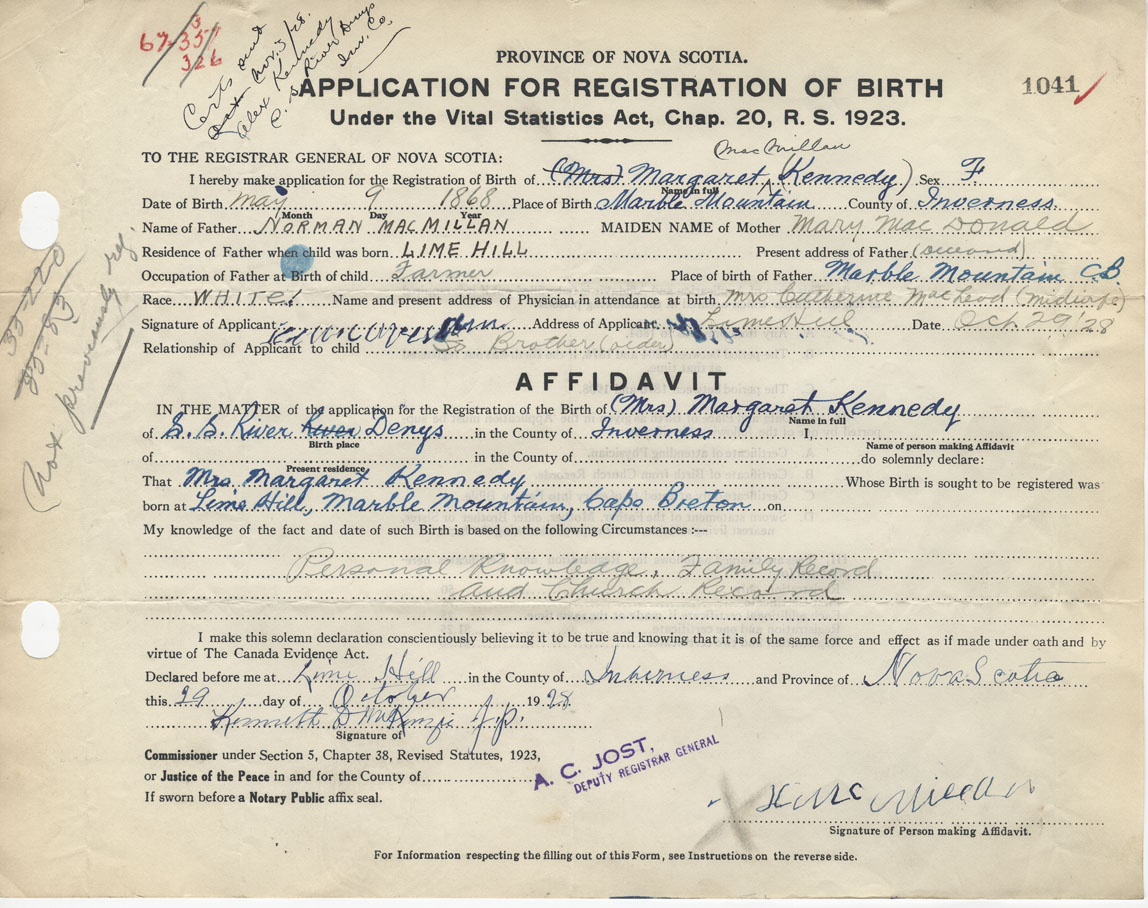 67-3
357
326
Certs sent
Nov. 3/28.
Alex Kennedy
River Denys
Inv. Co.
PROVINCE OF NOVA SCOTIA.
APPLICATION FOR REGISTRATION OF BIRTH
1041
Under the Vital Statistics Act, Chap. 20, R. S. 1923.
TO THE REGISTRAR GENERAL OF NOVA SCOTIA:
MacMillan
I hereby make application for the Registration of Birth of (Mrs) Margaret Kennedy) Sex F.
Name in full
Date of Birth May 9 1868 Place of Birth Marble Mountain County of Inverness.
Month Day Year
Name of Father NORMAN MACMILLAN MAIDEN NAME of Mother Mary Mac Donald
Residence of Father when child was born. LIME HILL Present address of Father (deceased)
Occupation of Father at Birth of child Farmer Place of birth of Father Marble Mountain C.B.
Race WHITE Name and present address of Physician in attendance at birth Mrs Catherine MacLeod (midwife)
Signature of Applicant Address of Applicant Lime Hill Date Oct 29 '28
Relationship of Applicant to child Brother (older)
AFFIDAVIT
IN THE MATTER of the application for the Registration of the Birth of (Mrs) Margaret Kennedy
Name in full
of S. S. River River Denys in the County of Inverness I,
Birth place Name of person making Affidavit
of in the County of do solemnly declare:
Present residence
That Mrs. Margaret Kennedy Whose Birth is sought to be registered was
born at Lime Hill, Marble Mountain, Cape Breton on
My knowledge of the fact and date of such Birth is based on the following Circumstances :---
Personal Knowledge, Family Record
and Church Record
I make this solemn declaration conscientiously believing it to be true and knowing that it is of the same force and effect as if made under oath and by
virtue of The Canada Evidence Act.
Declared before me at Lime Hill in the County of Inverness and Province of Nova Scotia
this 29 day of October 1928
Kenneth D McKenzie J.P.
Signature of
Commissioner under Section 5, Chapter 38, Revised Statutes, 1923,
or Justice of the Peace in and for the County of
If sworn before a Notary Public affix seal.
A. C. JOST,
DEPUTY REGISTRAR GENERAL
X McMillan
Signature of Person making Affidavit.
For Information respecting the filling out of this Form, see Instructions on the reverse side.
Not previously reg.